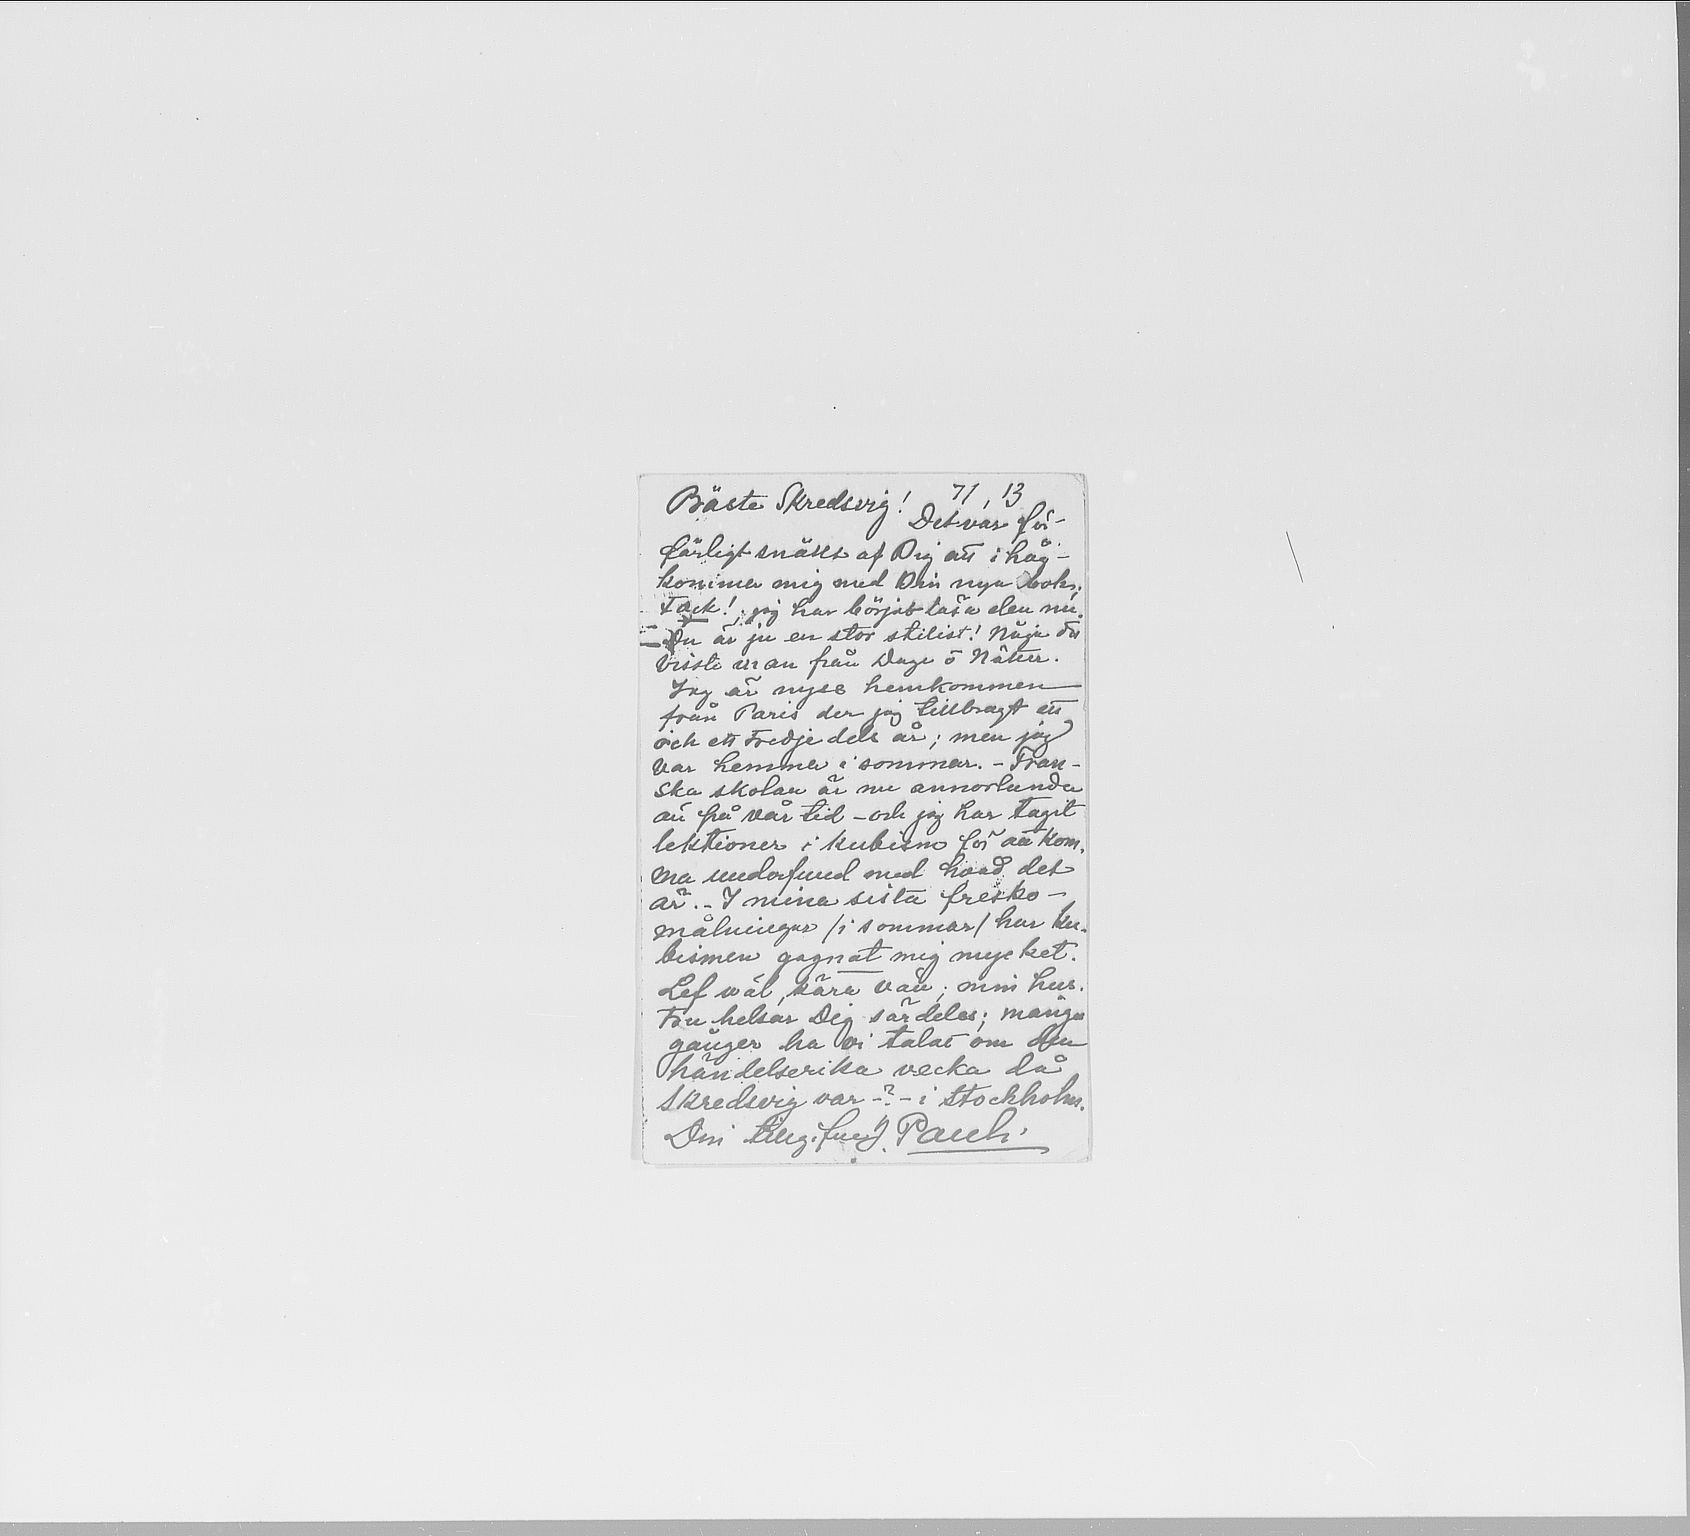 Bäste Skredsvig! 7/1, 13
Det var för-
färligt snällt af Dig att i håg-
komma mig med Din nya bok;
Tack! jag har börjat läsa den nu.
Du är ju en stor stilist! Nåja det
visste man från Dage o Nätter.
Jag är nyss hemkommen
från Paris der jag tillbragt ett
och ett tredjedels år; men jag
var hemma i sommar. - Fran-
ska skolan är nu annorlunda
än på vår tid - och jag har tagit
lektioner i kubism för att kom-
ma underfund med hvad det
är. - I mina sista fresko-
målningar /i sommar/ har ku-
bismen gagnat mig mycket.
Lef väl, kära vän; min hus-
tru helsar Dig särdeles; många
gånger ha vi talat om den
händelserika vecka då
Skredsvig var -?- i Stockholm.
Din tillgifne G. Pauli.